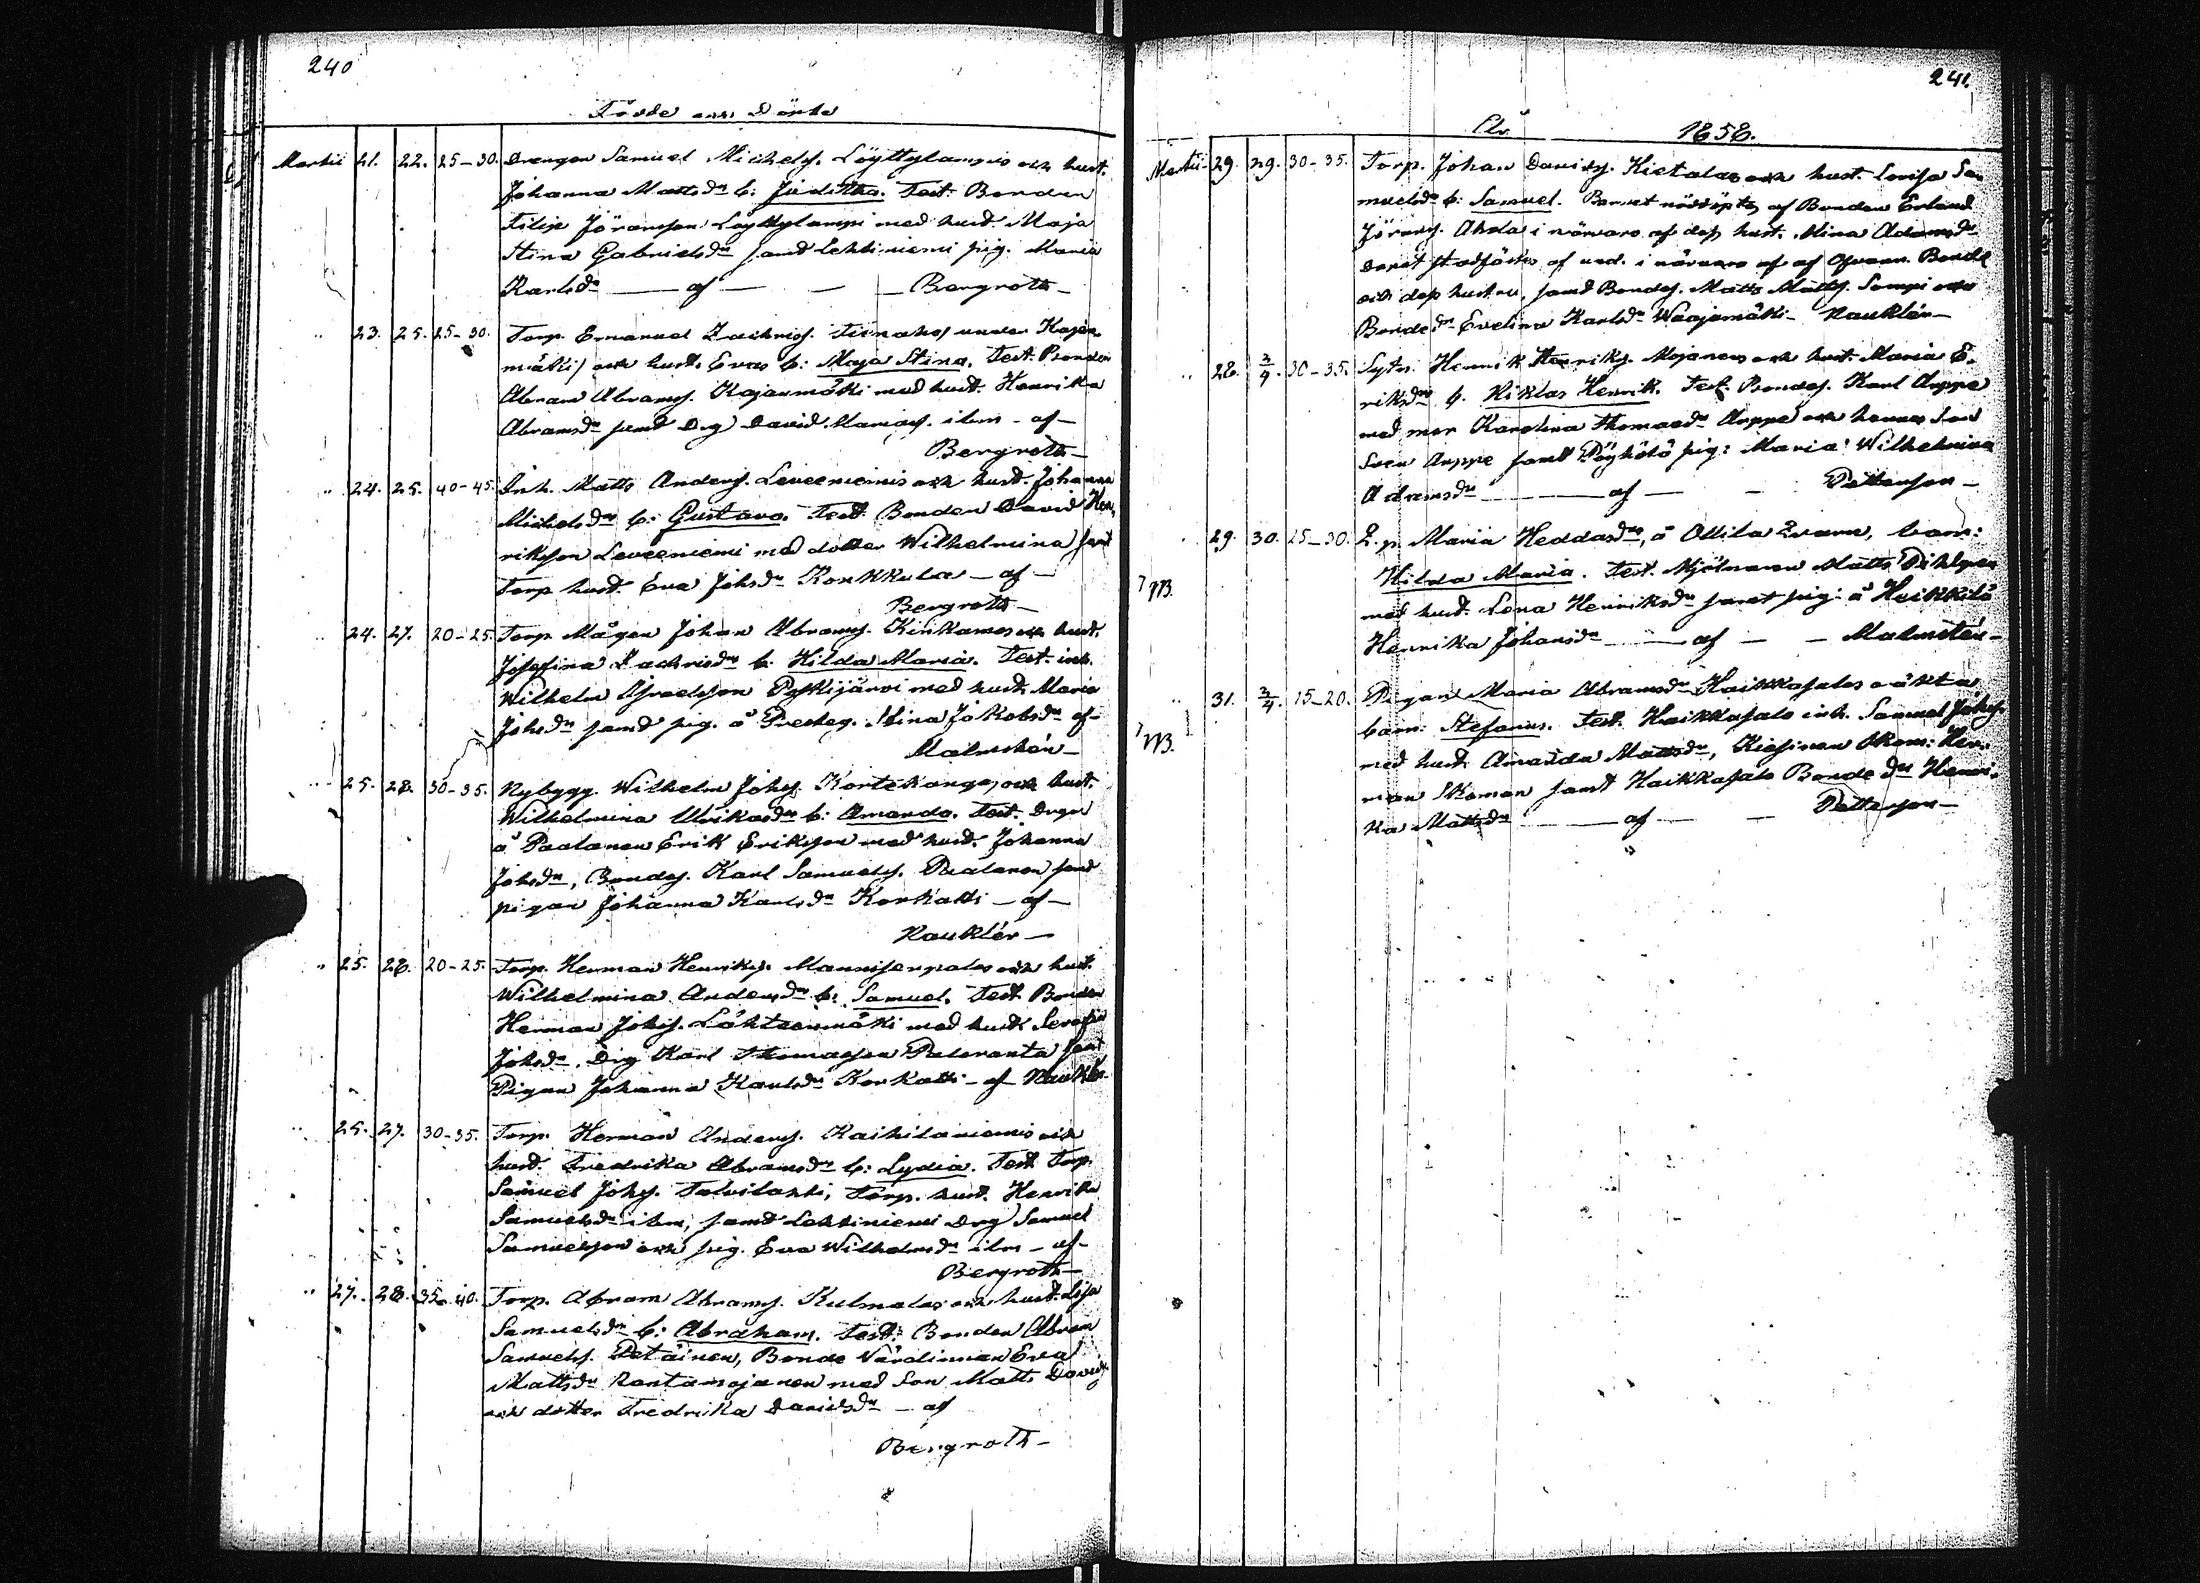 240
Födde och Döpte
Martii 21. 22. 25-30. Drengen Samuel Michelss. Löyttylampis och hust.
Johanna Mattsdr b: Juditha. Test. Bonden
Filip Jöransson Löyttylampi med hust. Maja
Stina Gabrielsdr samt Lehtiniemi pig. Maria
Karlsdr — af — Bergroth —
" 23. 25. 25-30. Torp. Emanuel Zachriss. Tiinahos under Kajan-
mäki och hust. Evas b: Maja Stina. Test. Bonden
Abram Abramss. Kajanmäki med hust. Henrika
Abramsdr samt Drg David Mariass. ibm - af -
Bergroth —
" 24. 25. 40-45. Inh. Matts Anderss. Leveeniemis och hust. Johanna
Michelsdr b: Gustava. Test. Bonden David Hen-
riksson Leveeniemi med dotter Wilhelmina samt
Torp hust. Eva Johsdr Konkkula - af -
Bergroth —
" 24. 27. 20-25. Torp Mågen Johan Abramss. Kinkamos och hust.
Josefina Zachrisdr b. Hilda Maria. Test. inh.
Wilhelm Israelsson Pyskijärvi med hust. Maria
Johsdr samt pig. å Presteg. Stina Jakobsdr af -
Malmstén —
" 25. 28. 30-35. Nybygg. Wilhelm Johss. Kortekangas och hust.
Wilhelmina Ulrikasdr b: Amanda. Test. Drgn
å Paalanen Erik Eriksson med hust. Johanna
Johsdr, Bondes. Karl Samuelss. Paalanen samt
pigan Johanna Karlsdr Korkatti - af -
Nauklér —
" 25. 28. 20-25. Torp. Herman Henrikss. Mannisenpalos och hust.
Wilhelmina Andersdr b: Samuel. Test. Bonden
Herman Johss. Lähteenmäki med hust. Serafia
Johsdr. Drg Karl Thomasson Peteranta samt
Pigan Johanna Karlsdr Korkatti - af Nauklér
" 25. 27. 30-35. Torp. Herman Anderss. Kaihilaniemis och
hust. Fredrika Abramsdr b: Lydia. Test. Torp.
Samuel Johss. Talvilahti, Torp. hust. Henrika
Samuelsdr ibm, samt Lehtiniemi Drg Samuel
Samuelsson och pig. Eva Wilhelmsdr ibm - af -
Bergroth —
" 27. 28. 35-40. Torp. Abram Abramss. Kulmalas och hust. Lisa
Samuelsdr b: Abraham. Test: Bonden Abram
Samuelss. Petäinen, Bonde Värdinnan Eva
Mattsdr Rantamojanen med Son Matts Davids
och dotter Fredrika Davidsdr - af
Bergroth —
241.
År 1858.
Martii 29. 29. 30-35. Torp. Johan Davidss. Hietalas och hust. Lovisa Sa-
muelsdr b: Samuel. Barnet nöddöptes af Bonden Erland
Jöranss. Ahola i närvaro af dess hust. Stina Adamsdr
Dopet stadfästes af und. i närvaro af ofvann. Bonde
och dess hustru, samt Bondes. Matts Mattss. Sompi och
Bondedr Evelina Karlsdr Waajamäki - Nauklér —
" 28. 2/4. 30-35. Sytn. Henrik Henrikss. Mojanens och hust. Maria E-
riksdr b. Niklas Henrik. Test. Bondes. Karl Arppe
med mor Karolina Thomasdr Arppe och hennes Son
Sven Arppe samt Pöykölä pig: Maria Wilhelmina
Adamsdr — af — Pettersson —
" 29. 30. 25-30. L. p. Maria Heddasdr, å Ollila Qvarn, barn:
Hilda Maria. Test. Mjölnaren Matts Pihlgren
med hust. Lena Henriksdr samt pig: å Heikkilä
Henrika Johansdr — af — Malmstén —
" 31. 2/4. 15-20. Pigan Maria Abramsdr Haikkasalos oäkta
barn: Stefanus. Test. Haikkasalo inh. Samuel Johss.
med hust. Amanda Mattsdr, Kiesinen Skom: Her-
man Skoman samt Haikkasalo Bonde dr Henri-
ka Mattsdr — af — Pettersson —